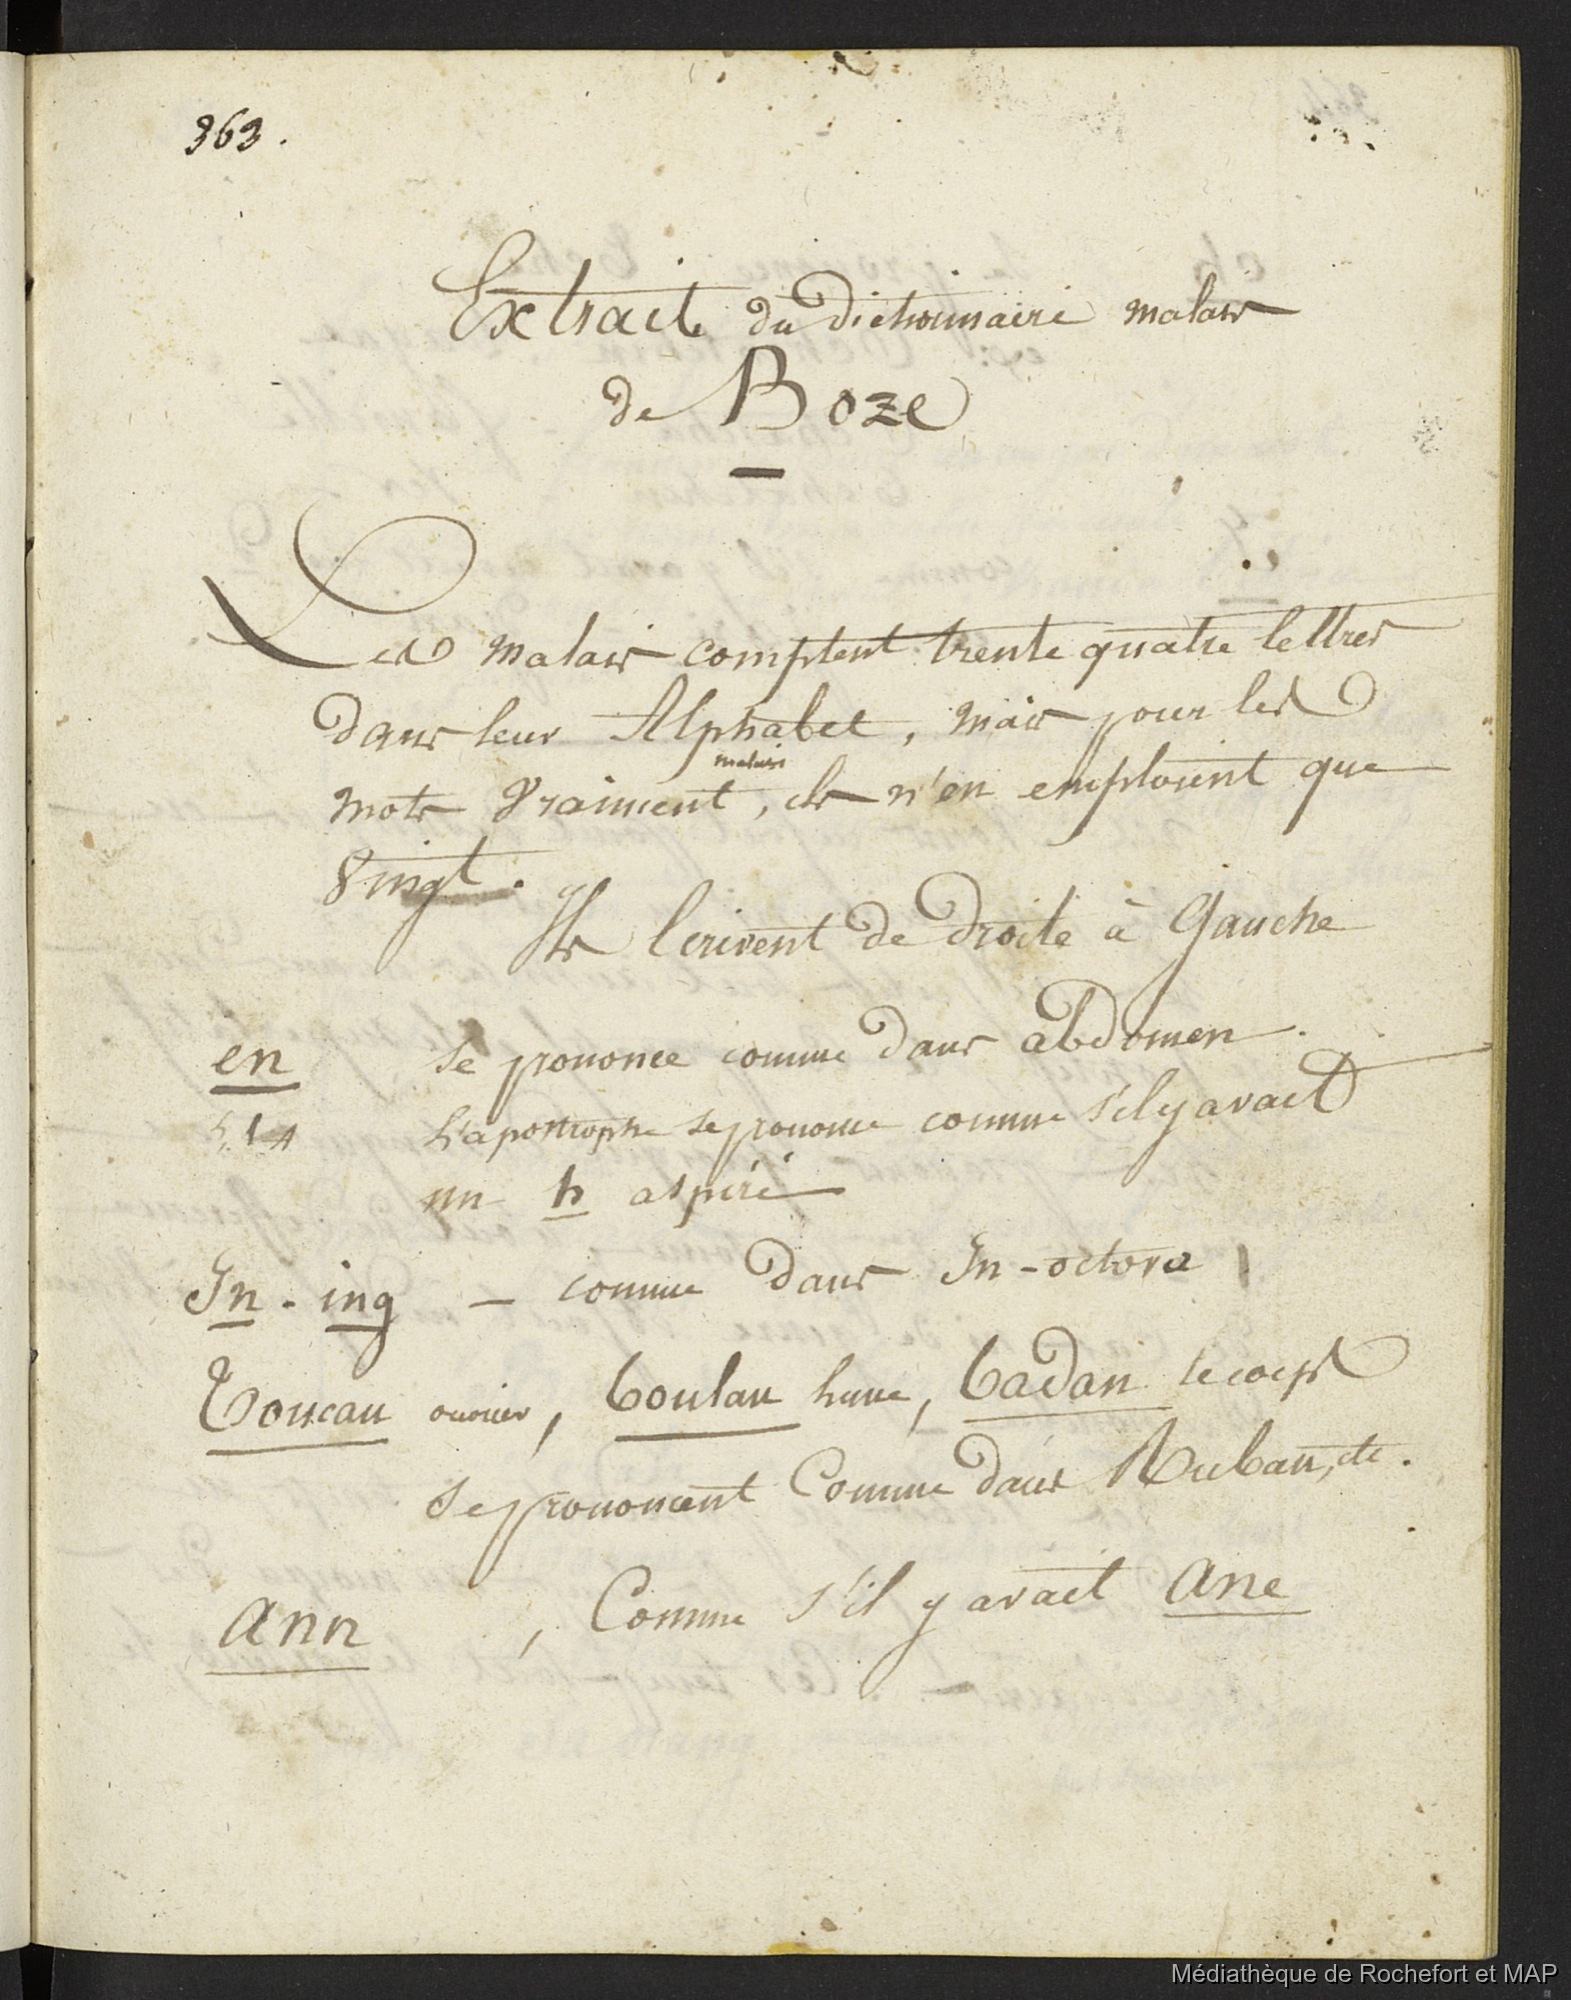 363.
Extrait du dictionnaire malais
de Boze
Les malais comptent trente quatre lettres
dans leur Alphabet, mais pour les
malais
mots vraiment, ils n'en emploient que
vingt.
Ils écrivent de droite à Gauche
en se prononce comme dans abdomen.
L'apostrophe se prononce comme s'il y avait
un h aspiré
In - ing — comme dans In-octavo
Toucan ouvrier, boulan lune, badan le corps
se prononcent Comme dans Ruban, etc.
ann , Comme s'il y avait ane
Médiathèque de Rochefort et MAP